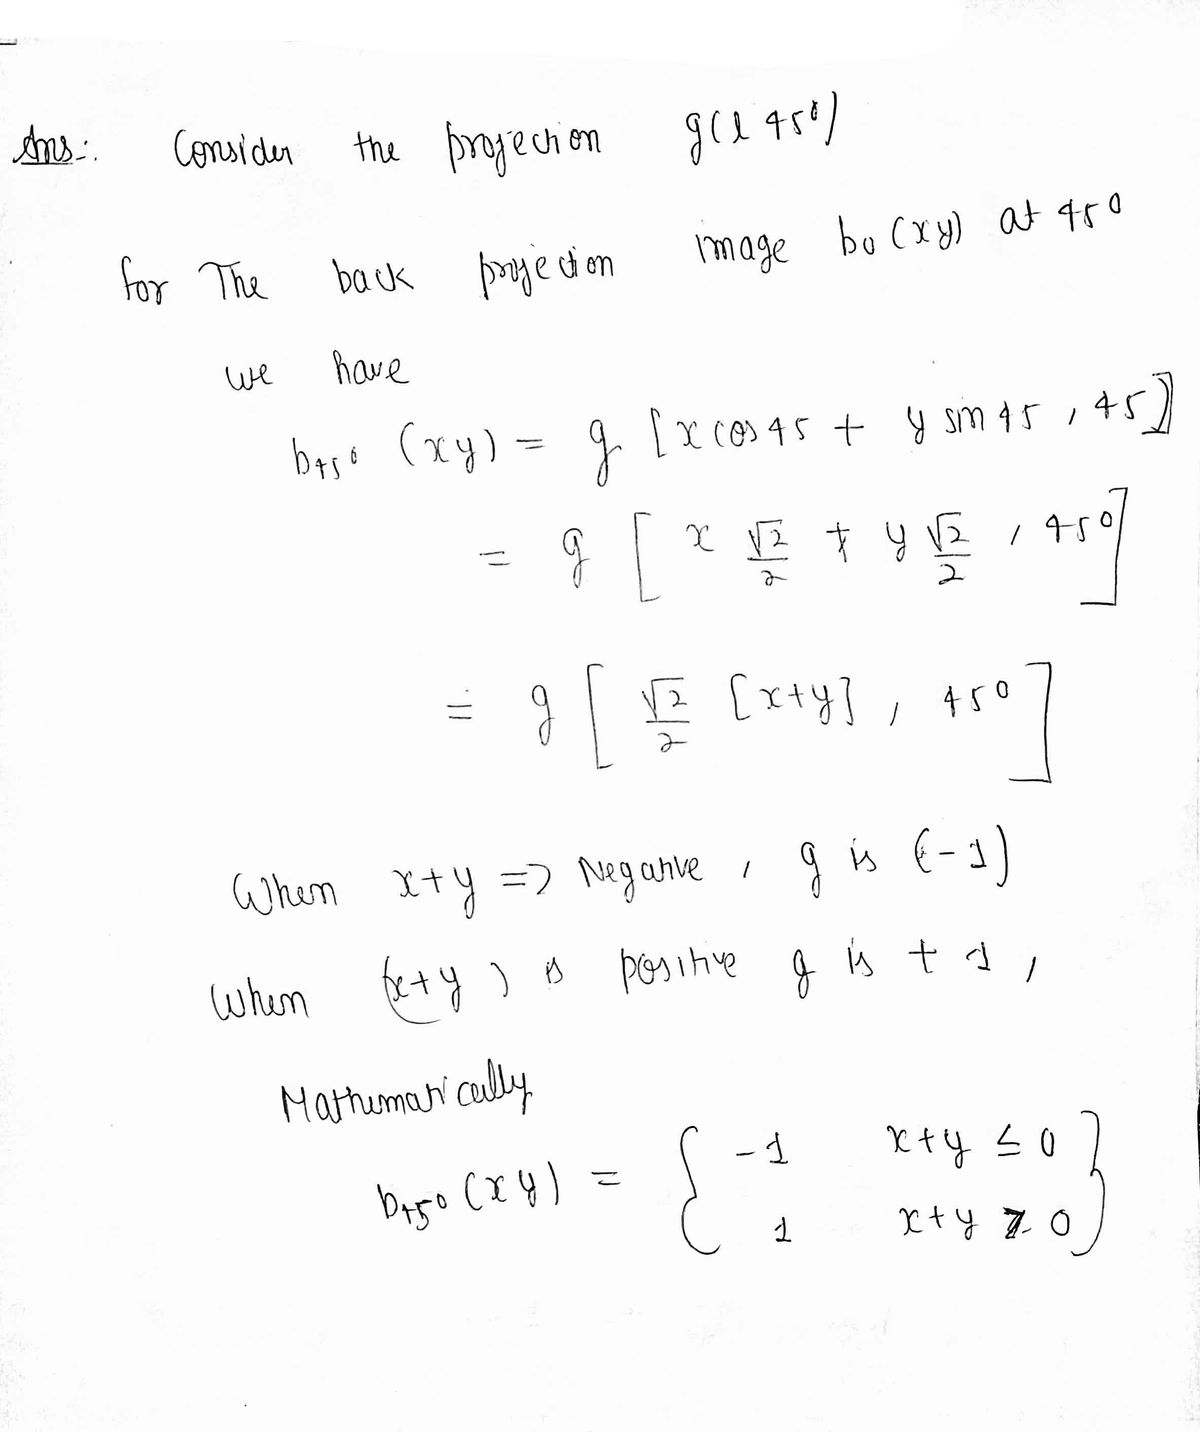 Ans:. Consider the projection g(l 45°)
for The back projection image bθ (xy) at 45°
we have
b45° (xy) = g [x cos 45 + y sin 45 , 45]
= g [ x √2/2 + y √2/2 , 45° ]
= g [ √2/2 [x+y] , 45° ]
When x+y => Negative , g is (-1)
When (x+y) is positive g is + 1 ,
Mathematically
b45° (xy) = { -1 x+y ≤ 0
1 x+y ≥ 0 }